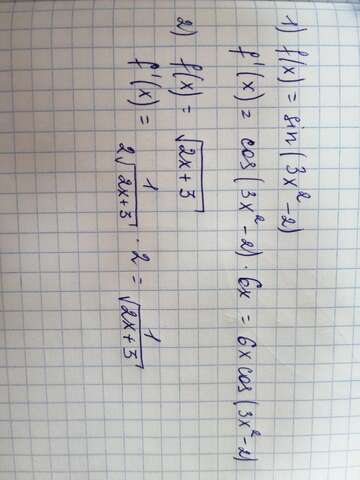 1) f(x) = sin(3x² - 2)
f'(x) = cos(3x² - 2) · 6x = 6x cos(3x² - 2)
2) f(x) = √(2x + 3)
f'(x) = 1/(2√(2x + 3)) · 2 = 1/√(2x + 3)